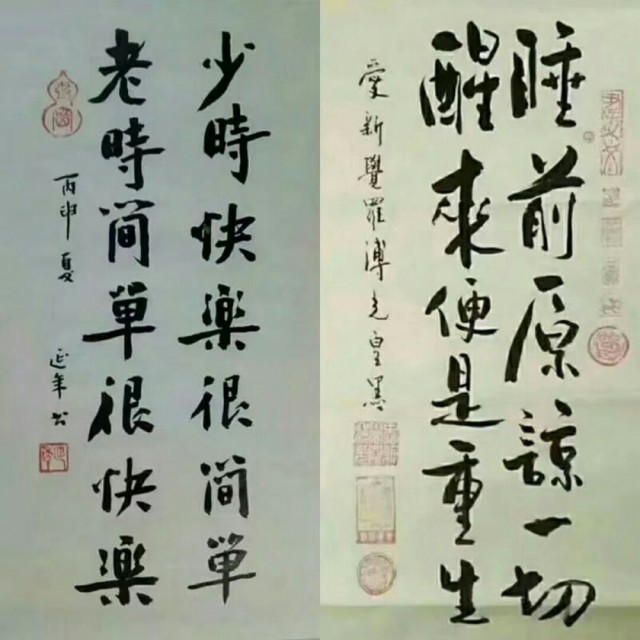 少時快樂很簡單
老時簡單很快樂
丙申夏 延年
睡前原諒一切
醒來便是重生
愛新覺羅溥